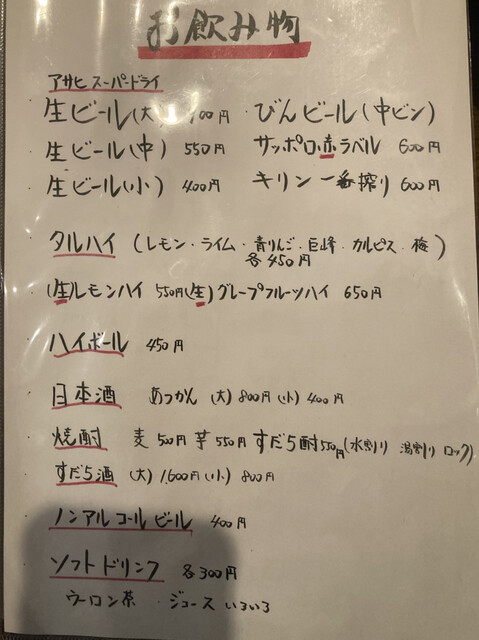 お飲み物
アサヒ スーパードライ
生ビール(大) 00円 びんビール(中ビン)
生ビール(中) 550円 サッポロ赤ラベル 600円
生ビール(小) 400円 キリン一番搾り 600円
タルハイ (レモン・ライム・青りんご・巨峰・カルピス・梅)
各450円
(生)レモンハイ 550円 (生)グレープフルーツハイ 650円
ハイボール 450円
日本酒 あつかん (大) 800円 (小) 400円
焼酎 麦 500円 芋 550円 すだち酎 550円 (水割り 湯割り ロック)
すだち酒 (大) 1,600円 (小) 800円
ノンアルコールビール 400円
ソフトドリンク 各300円
ウーロン茶 ジュース いろいろ